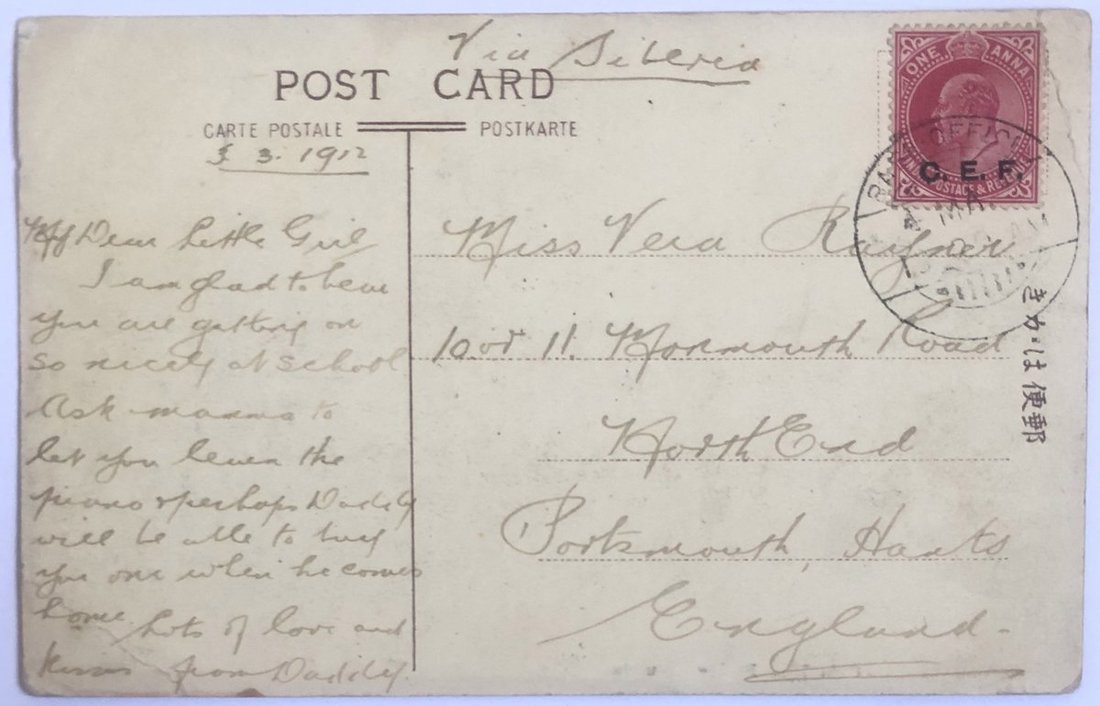 Via Siberia
POST CARD
CARTE POSTALE
POSTKARTE
3. 1912
My Dear Little Girl
I am glad to hear
you are getting on
so nicely at school
Ask mamma to
let you learn the
piano & perhaps Daddy
will be able to buy
you one when he comes
home
Lots of love and
kisses from Daddy
Miss Vera
10 or 11. Monmouth Road
North End
Portsmouth, Hants
England
ONE ANNA
POSTAGE & REVENUE
C. E. F.
OFFICE
4 MA
きかは便郵